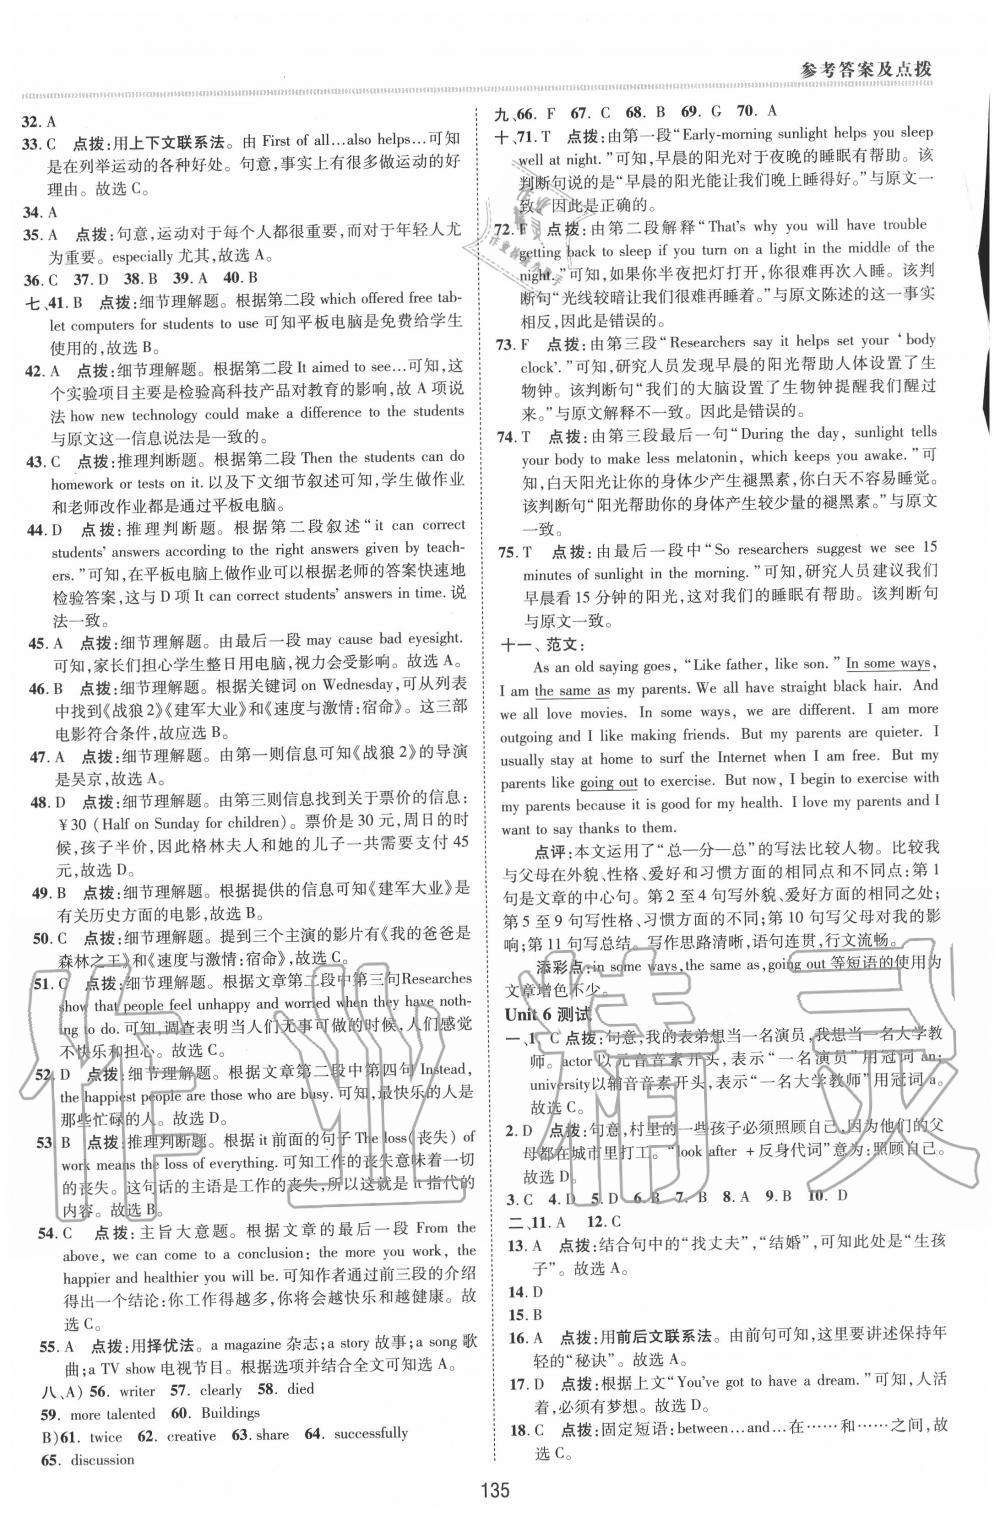 参考答案及点拨
32. A
33. C 点拨:用上下文联系法。由 First of all…also helps…可知
是在列举运动的各种好处。句意,事实上有很多做运动的好
理由。故选 C。
34. A
35. A 点拨:句意,运动对于每个人都很重要,而对于年轻人尤
为重要。especially 尤其,故选 A。
36. C 37. D 38. B 39. A 40. B
七、41. B 点拨:细节理解题。根据第二段 which offered free tab-
let computers for students to use 可知平板电脑是免费给学生
使用的,故选 B。
42. A 点拨:细节理解题。根据第二段 It aimed to see…可知,这
个实验项目主要是检验高科技产品对教育的影响,故 A 项说
法 how new technology could make a difference to the students
与原文这一信息说法是一致的。
43. C 点拨:推理判断题。根据第二段 Then the students can do
homework or tests on it. 以及下文细节叙述可知,学生做作业
和老师改作业都是通过平板电脑。
44. D 点拨:推理判断题。根据第二段叙述“it can correct
students’ answers according to the right answers given by teach-
ers.”可知,在平板电脑上做作业可以根据老师的答案快速地
检验答案,这与 D 项 It can correct students’ answers in time. 说
法一致。
45. A 点拨:细节理解题。由最后一段 may cause bad eyesight.
可知,家长们担心学生整日用电脑,视力会受影响。故选 A。
46. B 点拨:细节理解题。根据关键词 on Wednesday,可从列表
中找到《战狼 2》《建军大业》和《速度与激情:宿命》。这三部
电影符合条件,故应选 B。
47. A 点拨:细节理解题。由第一则信息可知《战狼 2》的导演
是吴京,故选 A。
48. D 点拨:细节理解题。由第三则信息找到关于票价的信息:
￥30 (Half on Sunday for children)。票价是 30 元,周日的时
候,孩子半价,因此格林夫人和她的儿子一共需要支付 45
元,故选 D。
49. B 点拨:细节理解题。根据提供的信息可知《建军大业》是
有关历史方面的电影,故选 B。
50. C 点拨:细节理解题。提到三个主演的影片有《我的爸爸是
森林之王》和《速度与激情:宿命》,故选 C。
51. C 点拨:细节理解题。根据文章第二段中第三句Researches
show that people feel unhappy and worried when they have noth-
ing to do. 可知,调查表明当人们无事可做的时候,人们感觉
不快乐和担心。故选 C。
52. D 点拨:细节理解题。根据文章第二段中第四句 Instead,
the happiest people are those who are busy. 可知,最快乐的人是
那些忙碌的人。故选 D。
53. B 点拨:推理判断题。根据 it 前面的句子 The loss(丧失) of
work means the loss of everything. 可知工作的丧失意味着一切
的丧失。这句话的主语是工作的丧失,所以这是 it 指代的
内容。故选 B。
54. C 点拨:主旨大意题。根据文章的最后一段 From the
above, we can come to a conclusion: the more you work, the
happier and healthier you will be. 可知作者通过前三段的介绍
得出一个结论:你工作得越多,你就会越快乐和越健康。故
选 C。
55. A 点拨:用择优法。a magazine 杂志;a story 故事;a song 歌
曲;a TV show 电视节目。根据选项并结合全文可知选 A。
八、A) 56. writer 57. clearly 58. died
59. more talented 60. Buildings
B)61. twice 62. creative 63. share 64. successfully
65. discussion
九、66. F 67. C 68. B 69. G 70. A
十、71. T 点拨:由第一段“Early-morning sunlight helps you sleep
well at night.”可知,早晨的阳光对于夜晚的睡眠有帮助。该
判断句说的是“早晨的阳光能让我们晚上睡得好。”与原文一
致。因此是正确的。
72. F 点拨:由第二段解释“That’s why you will have trouble
getting back to sleep if you turn on a light in the middle of the
night.”可知,如果你半夜把灯打开,你很难再次入睡。该判
断句“光线较暗让我们很难再睡着。”与原文陈述的这一事实
相反,因此是错误的。
73. F 点拨:由第三段“Researchers say it helps set your ‘body
clock’.”可知,研究人员发现早晨的阳光帮助人体设置了生
物钟。该判断句“我们的大脑设置了生物钟提醒我们醒过
来。”与原文解释不一致。因此是错误的。
74. T 点拨:由第三段最后一句“During the day, sunlight tells
your body to make less melatonin, which keeps you awake.”可
知,白天阳光让你的身体少产生褪黑素,白天不容易感觉到。
该判断句“阳光帮助你的身体产生较少量的褪黑素。”与原文
一致。
75. T 点拨:由最后一段中“So researchers suggest we see 15
minutes of sunlight in the morning.”可知,研究人员建议我们
早晨看 15 分钟的阳光,这对我们的睡眠有帮助。该判断句
与原文一致。
十一、范文:
As an old saying goes, “Like father, like son.” In some ways,
I am the same as my parents. We all have straight black hair. And
we all love movies. In some ways, we are different. I am more
outgoing and I like making friends. But my parents are quieter. I
usually stay at home to surf the Internet when I am free. But my
parents like going out to exercise. But now, I begin to exercise with
my parents because it is good for my health. I love my parents and I
want to say thanks to them.
点评:本文运用了“总—分—总”的写法比较人物。比较我
与父母在外貌、性格、爱好和习惯方面的相同点和不同点。第 1
句是文章的中心句。第 2 至 4 句写外貌、爱好方面的相同之处;
第 5 至 9 句写性格、习惯方面的不同;第 10 句写父母对我的影
响;第 11 句写总结。写作思路清晰,语句连贯,行文流畅。
添彩点:in some ways,the same as,going out 等短语的使用为
文章增色不少。
Unit 6 测试
一、1. C 点拨:句意,我的表弟想当一名演员,我想当一名大学教
师。actor 以元音音素开头,表示“一名演员”用冠词 an;
university以辅音音素开头,表示“一名大学教师”用冠词 a。
故选 C。
2. D 点拨:句意,村里的一些孩子必须照顾自己,因为他们的父
母都在城市里打工。“look after +反身代词”意为:照顾自己。
故选 D。
3. C 4. D 5. D 6. B 7. B 8. A 9. B 10. D
二、11. A 12. C
13. A 点拨:结合句中的“找丈夫”,“结婚”,可知此处是“生孩
子”。故选 A。
14. D
15. B
16. A 点拨:用前后文联系法。由前句可知,这里要讲述保持年
轻的“秘诀”。故选 A。
17. D 点拨:根据上文“You’ve got to have a dream.”可知,人活
着,必须有梦想。故选 D。
18. C 点拨:固定短语:between…and…在……和……之间,故
选 C。
135
作业精灵